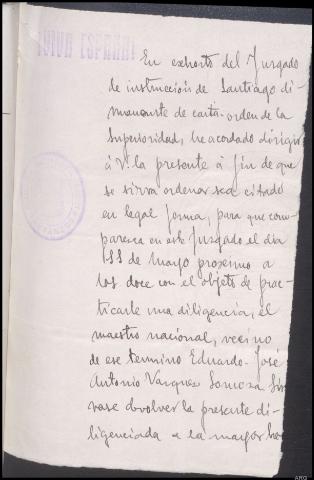 ¡VIVA ESPAÑA!
En exhorto del Juzgado
de instrucción de Santiago di-
manante de carta-orden de la
Superioridad, he acordado dirigir
á V. la presente á fin de que
se sirva ordenar sea citado
en legal forma, para que com-
paresca en este Juzgado el día
11 de Mayo proximo a
las doce con el objeto de prac-
ticarle una diligencia, el
maestro nacional, vecino
de ese termino Eduardo-José
Antonio Vazquez Somoza Sir
vase devolver la presente di-
ligenciada a la mayor
ARG